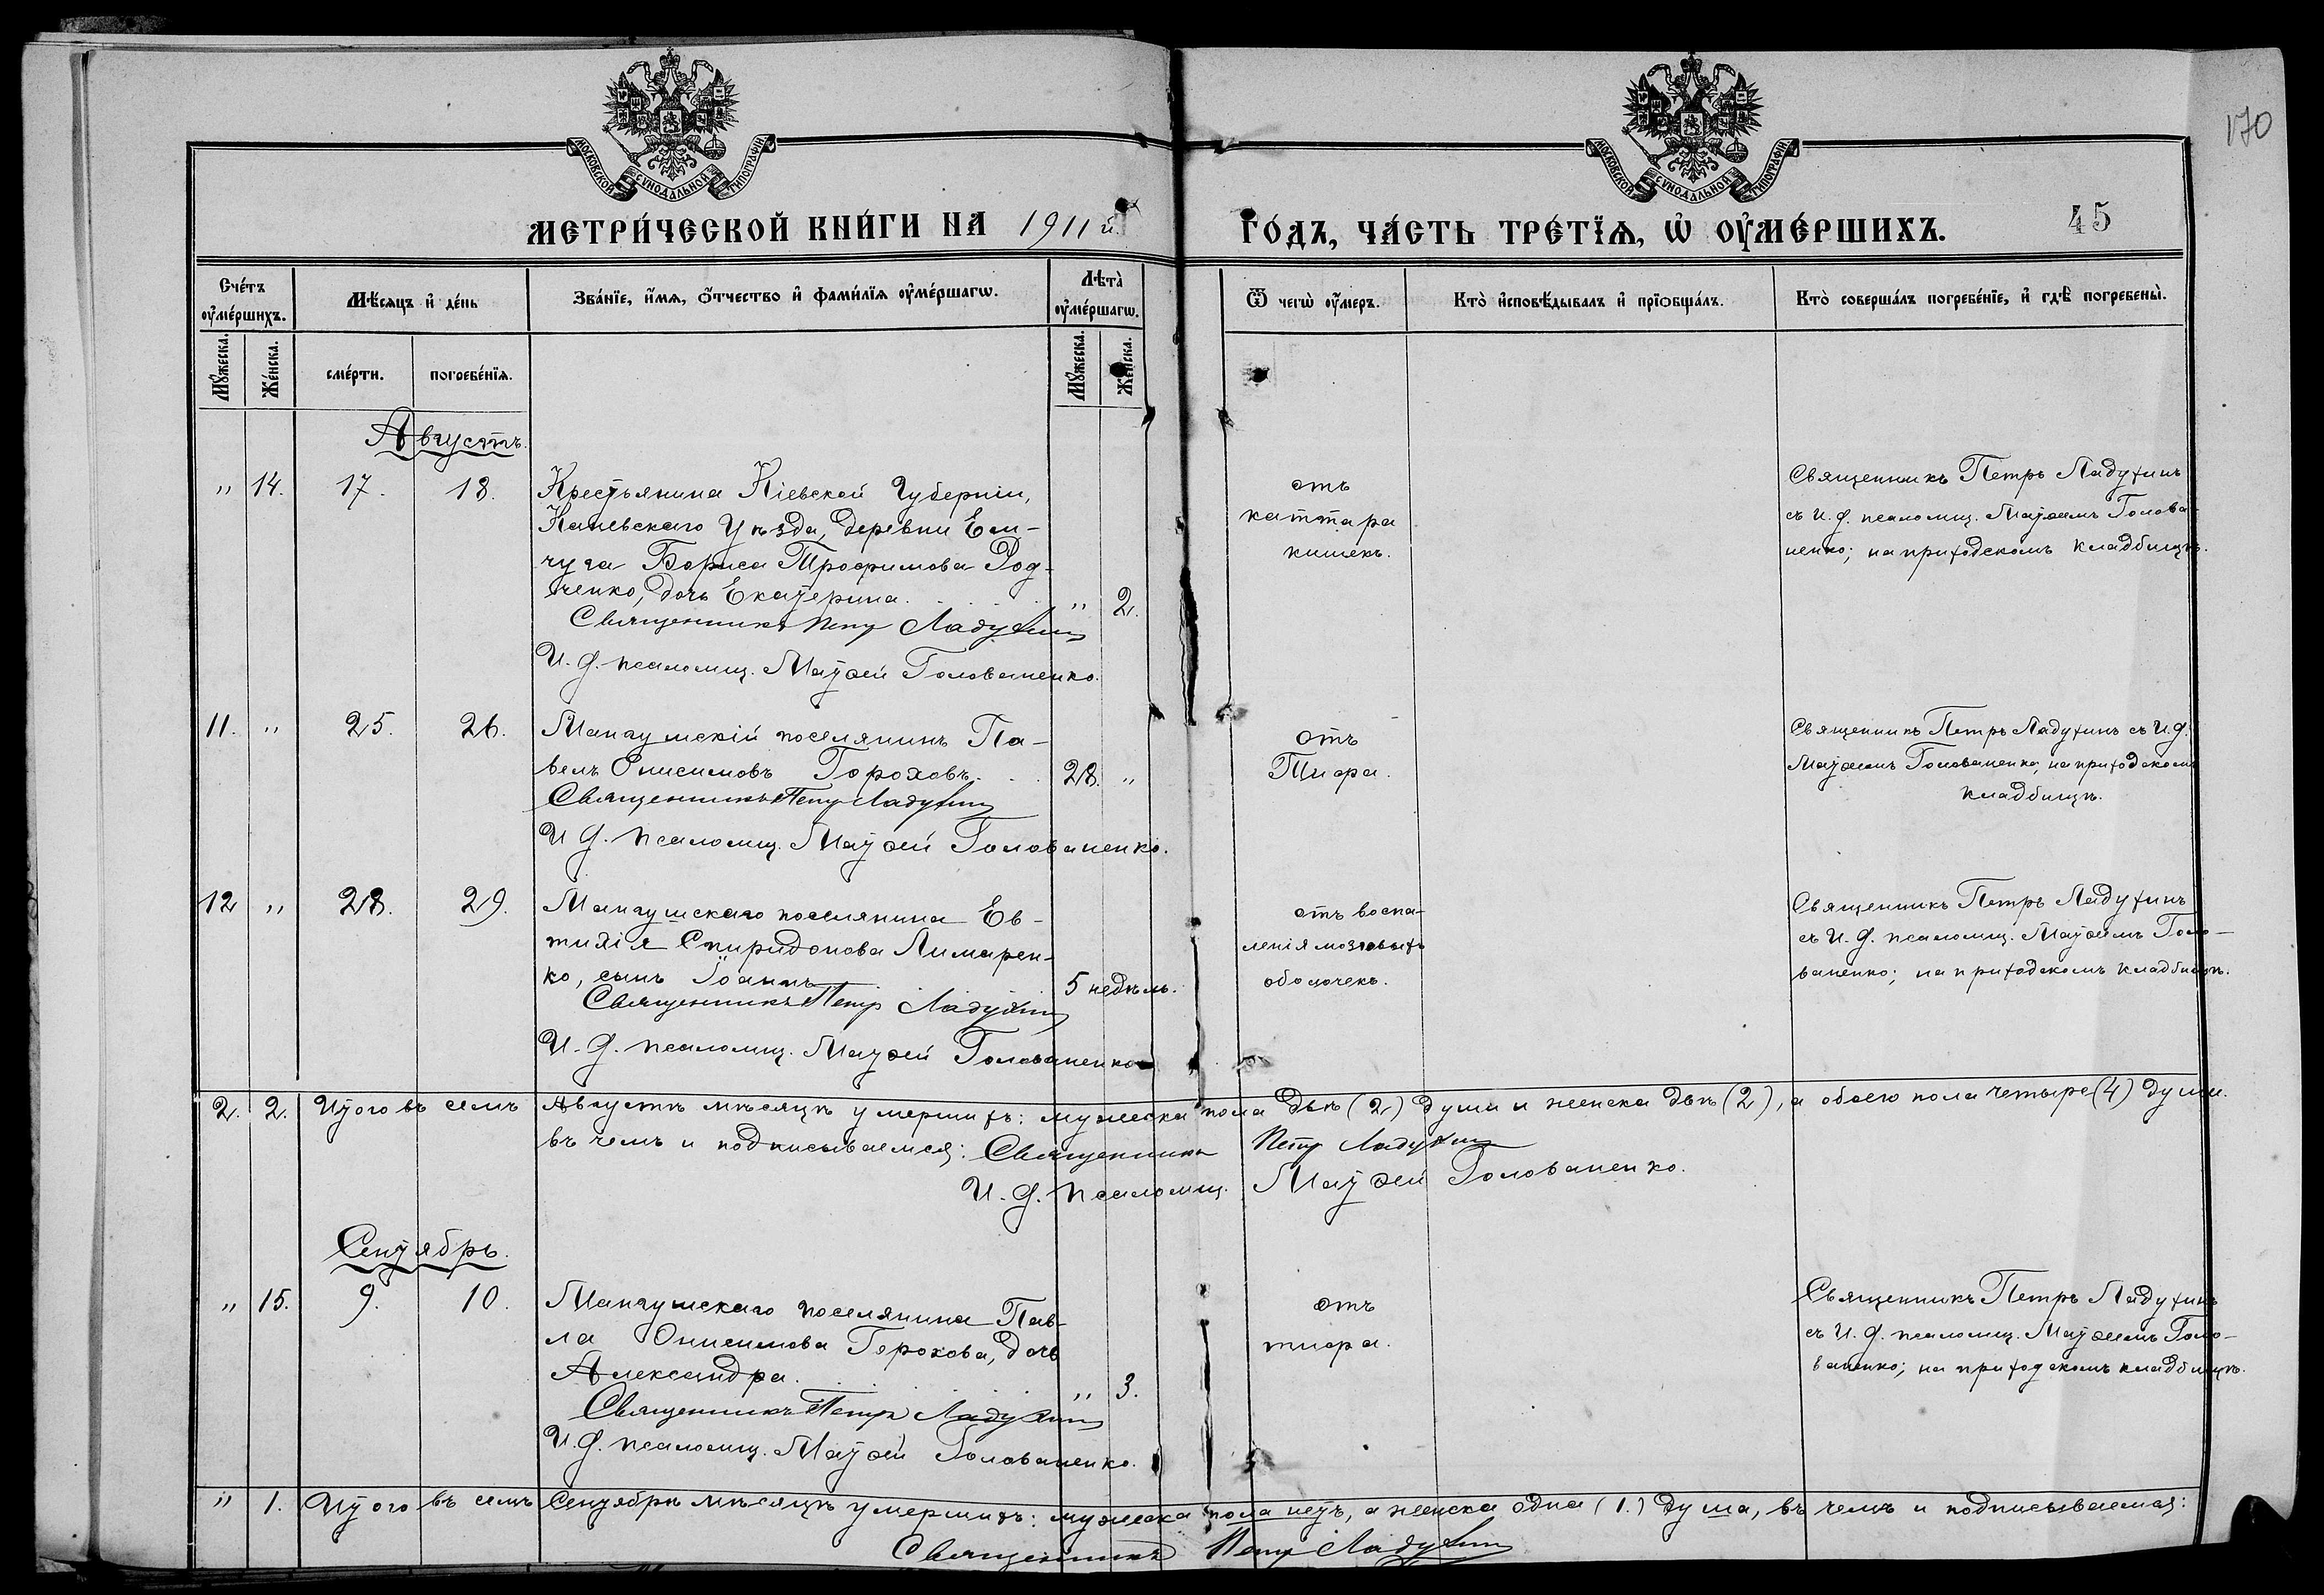 170
МОСКОВСКОЙ СѴНОДАЛЬНОЙ ТИПОГРАФІИ
МОСКОВСКОЙ СѴНОДАЛЬНОЙ ТИПОГРАФІИ
МЕТРИ́ЧЕСКОЙ КНИ́ГИ НА 1911 й ГО́ДЪ, ЧА́СТЬ ТРЕ́ТЇѦ, Ѡ ОУ҆МЕ́РШИХЪ. 45
Сче́тъ оу҆ме́ршихъ.
Мѣ́сяцъ и҆ де́нь
Зва́нїе, и҆́мя, ѻ҆́тчество и҆ фами́лїя оу҆ме́ршагѡ.
Лѣта̀ оу҆ме́ршагѡ.
Ѿ чегѡ̀ оу҆́меръ.
Кто̀ и҆сповѣ́дывалъ и҆ прїѻбща́лъ.
Кто̀ соверша́лъ погребе́нїе, и҆ гдѣ̀ погребены̀.
Мꙋ́жеска. Же́нска. сме́рти. погребе́нїя. Мꙋ́жеска. Же́нска.
Августъ.
" 14. 17. 18. Крестьянина Кіевской Губерніи,
Каневскаго Уѣзда, деревни Ем-
чуга Бориса Трофимова Род-
ченко, дочь Екатерина. " 2.
Священникъ Петр Ладухин
И. д. псаломщ. Матѳей Голованенко.
отъ
каттара
кишекъ.
Священникъ Петръ Ладухинъ
съ И. д. псаломщ. Матѳеемъ Голова-
ненко; на приходскомъ кладбищѣ.
11. " 25. 26. Мангушскій поселянинъ Па-
велъ Онисимовъ Гороховъ. 28. "
Священникъ Петр Ладухин
И д. псаломщ. Матѳей Голованенко.
отъ
Тифа.
Священникъ Петръ Ладухинъ съ И. д.
Матѳеемъ Голованенко, на приходскомъ
кладбищѣ.
12 " 28. 29. Мангушскаго поселянина Ев-
тихія Спиридонова Лимарен-
ко, сынъ Іоаннъ 5 недѣль.
Священникъ Петр Ладухин
И. д. псаломщ. Матѳей Голованенко
отъ воспа-
ленія мозговыхъ
оболочекъ.
Священникъ Петръ Ладухинъ
съ И. д. псаломщ. Матѳеемъ Голо-
ваненко; на приходскомъ кладбищѣ.
2. 2. Итого въ семъ Августѣ мѣсяцѣ умершихъ: мужеска пола двѣ (2) души и женска двѣ (2), а обоего пола четыре (4) души.
въ чемъ и подписываемся: Священникъ Петр Ладухин
И. д. псаломщ. Матѳей Голованенко.
Сентябрь.
" 15. 9. 10. Мангушскаго поселянина Пав-
ла Онисимова Горохова, дочь
Александра. " 3.
Священникъ Петръ Ладухин
И. д. псаломщ. Матѳей Голованенко.
отъ
тифа.
Священникъ Петръ Ладухинъ
съ И. д. псаломщ. Матѳеемъ Голо-
ваненко; на приходскомъ кладбищѣ.
" 1. Итого въ семъ Сентябрѣ мѣсяцѣ умершихъ: мужеска пола нетъ, а женска одна (1.) душа, въ чемъ и подписываемся:
Священникъ Петр Ладухин